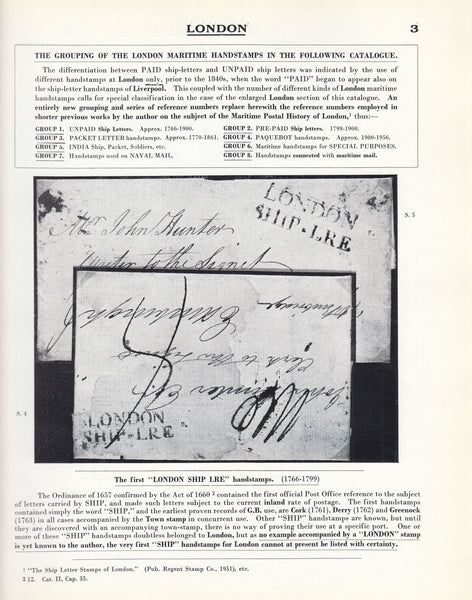 LONDON 3
THE GROUPING OF THE LONDON MARITIME HANDSTAMPS IN THE FOLLOWING CATALOGUE.
The differentiation between PAID ship-letters and UNPAID ship letters was indicated by the use of
different handstamps at London only, prior to the 1840s, when the word "PAID" began to appear also on
the ship-letter handstamps of Liverpool. This coupled with the number of different kinds of London maritime
handstamps calls for special classification in the case of the enlarged London section of this catalogue. An
entirely new grouping and series of reference numbers replace herewith the reference numbers employed in
shorter previous works by the author on the subject of the Maritime Postal History of London,¹ thus:—
GROUP 1. UNPAID Ship Letters. Approx. 1766-1900.
GROUP 2. PRE-PAID Ship letters. 1799-1900.
GROUP 3. PACKET LETTER handstamps. Approx. 1770-1861.
GROUP 4. PAQUEBOT handstamps. Approx. 1900-1956.
GROUP 5. INDIA Ship, Packet, Soldiers, etc.
GROUP 6. Maritime handstamps for SPECIAL PURPOSES.
GROUP 7. Handstamps used on NAVAL MAIL.
GROUP 8. Handstamps connected with maritime mail.
LONDON
SHIP-LRE
S. 5
John Hunter
Writer to the Signet
Edinburgh
S. 4
LONDON
SHIP-LRE
The first "LONDON SHIP LRE" handstamps. (1766-1799)
The Ordinance of 1657 confirmed by the Act of 1660 ² contained the first official Post Office reference to the subject
of letters carried by SHIP, and made such letters subject to the current inland rate of postage. The first handstamps
contained simply the word "SHIP," and the earliest proven records of G.B. use, are Cork (1761), Derry (1762) and Greenock
(1763) in all cases accompanied by the Town stamp in concurrent use. Other "SHIP" handstamps are known, but until
they are discovered with an accompanying town-stamp, there is no way of proving their use at a specific port. One or
more of these "SHIP" handstamps doubtless belonged to London, but as no example accompanied by a "LONDON" stamp
is yet known to the author, the very first "SHIP" handstamps for London cannot at present be listed with certainty.
¹ "The Ship Letter Stamps of London." (Pub. Regent Stamp Co., 1951), etc.
² 12. Car. II, Cap. 35.